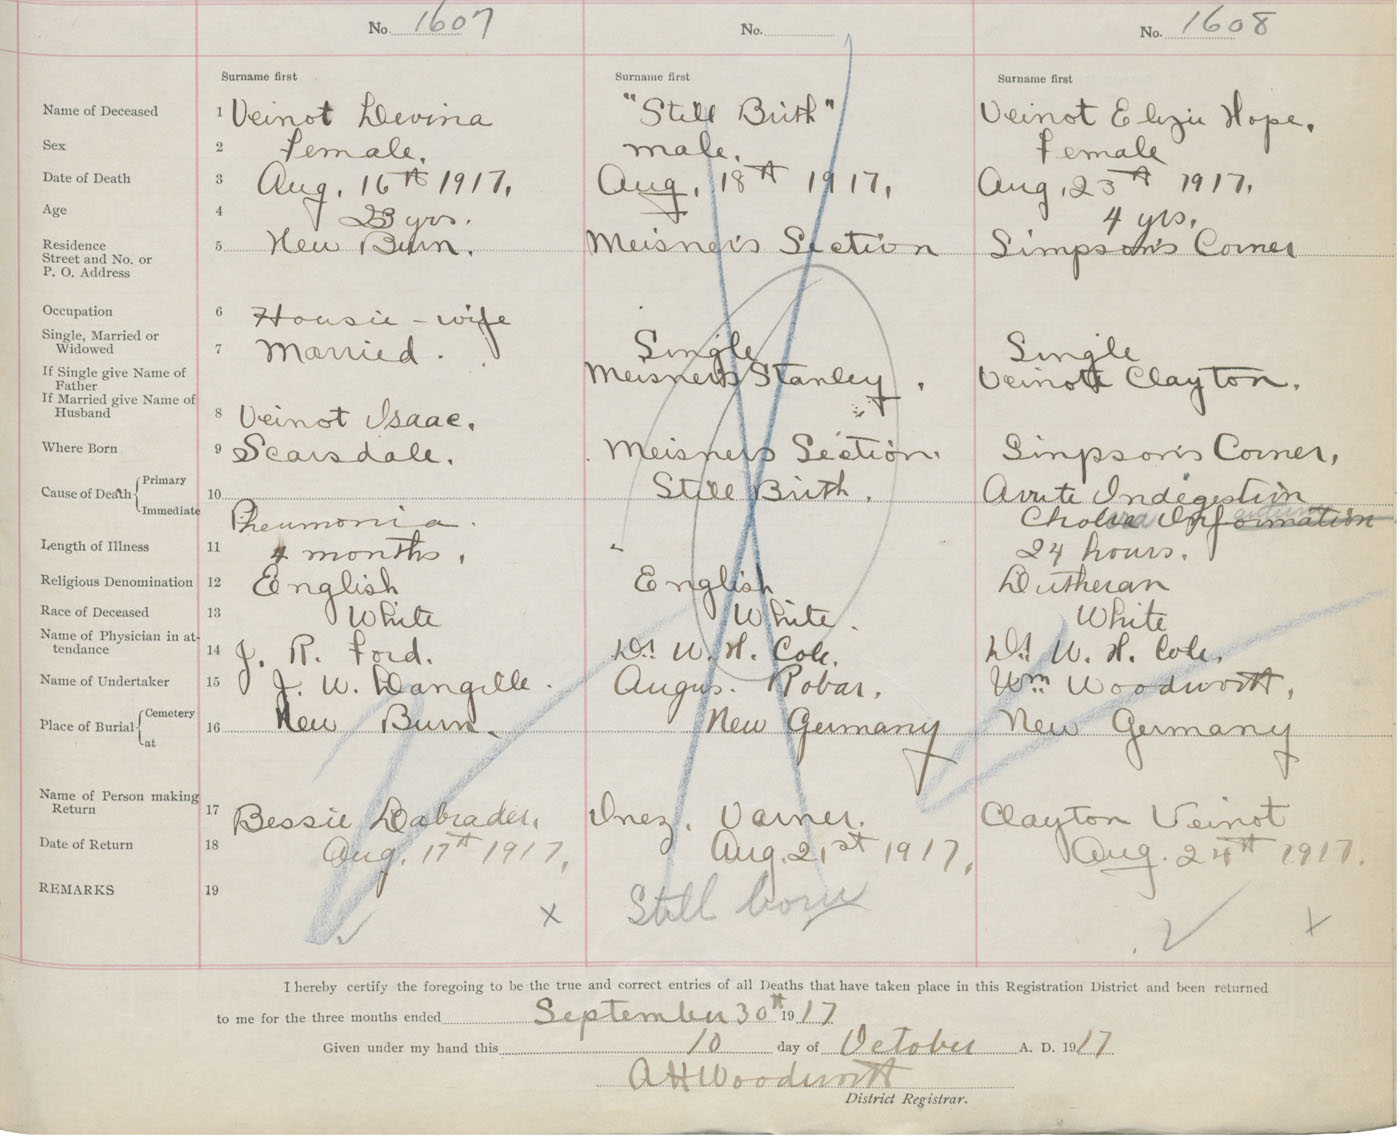 No. 1607 No. No. 1608
Surname first Surname first Surname first
Name of Deceased 1 Veinot Levina "Still Birth" Veinot Elizie Hope.
Sex 2 Female. male. Female
Date of Death 3 Aug. 16th 1917. Aug. 18th 1917. Aug. 23th 1917.
Age 4 23 yrs. 4 yrs.
Residence 5 New Burn. Meisner's Section Simpson's Corner
Street and No. or
P. O. Address
Occupation 6 Housie-wife
Single, Married or
Widowed 7 Married. Single Single
If Single give Name of
Father Meisner's Stanley. Veinott Clayton.
If Married give Name of
Husband 8 Veinot Isaac.
Where Born 9 Scarsdale. Meisners Section. Simpson's Corner.
Cause of Death Primary 10 Still Birth. Avute Indegestion
Immediate Pneumonia. Cholera Information
Length of Illness 11 4 months. 24 hours.
Religious Denomination 12 English English Lutheran
Race of Deceased 13 White White. White
Name of Physician in at-
tendance 14 J. R. Ford. Dr. W. H. Cole. Dr. W. H. Cole.
Name of Undertaker 15 J. W. Langille. Angus. Robar. Wm Woodworth.
Place of Burial Cemetery at 16 New Burn. New Germany New Germany
Name of Person making
Return 17 Bessie Labrader. Inez. Varner. Clayton Veinot
Date of Return 18 Aug. 17th 1917. Aug. 21st 1917. Aug. 24th 1917.
REMARKS 19 x Still born x
I hereby certify the foregoing to be the true and correct entries of all Deaths that have taken place in this Registration District and been returned
to me for the three months ended September 30th 1917
Given under my hand this 10 day of October A. D. 1917
A H Woodworth
District Registrar.